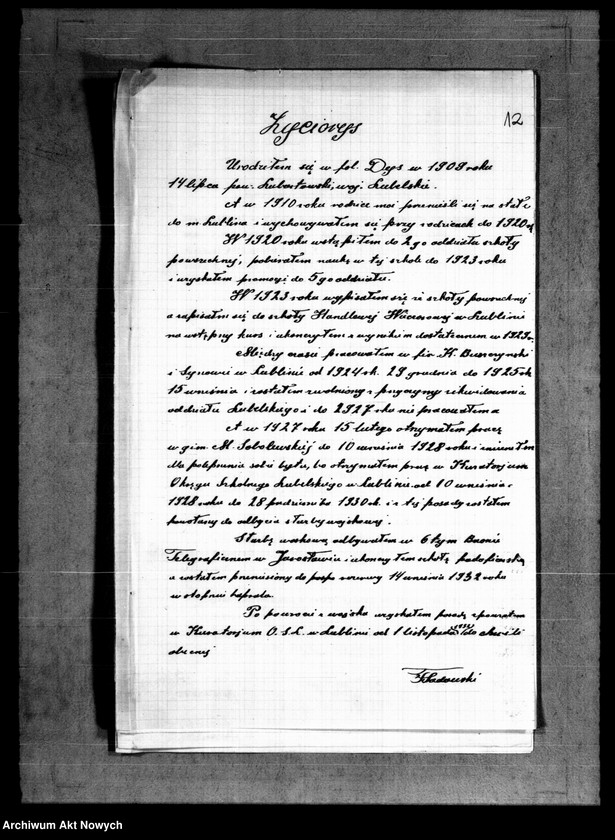 12
Życiorys
Urodziłem się w fol. Dęys w 1909 roku
14 lipca pow. Lubartowski, woj. Lubelskie.
A w 1910 roku rodzice moi przenieśli się na stałe
do m. Lublina i wychowywałem się przy rodzicach do 1920 r.
W 1920 roku wstąpiłem do 2go oddziału szkoły
powszechnej, pobierałem naukę w tej szkole do 1923 roku
i uzyskałem promocję do 5go oddziału.
W 1923 roku wypisałem się ze szkoły powszechnej
a zapisałem się do szkoły Handlowej Wieczorowej w Lublinie
na wstępny kurs i ukończyłem z wynikiem dostatecznem w 1929 r.
Między czasie pracowałem w fir. H. Buszczyński
i Synowie w Lublinie od 1924 rk. 29 grudnia do 1925 rk
15 września i zostałem zwolniony z przyczyny zlikwidowania
oddziału Lubelskiego i do 1927 rku nie pracowałem
A w 1927 roku 15 lutego otrzymałem pracę
w gim. M. Sobolewskiej do 10 września 1928 roku i zmieniłem
dla polepszenia sobie bytu, bo otrzymałem pracę w Kuratorjum
Okręgu Szkolnego Lubelskiego w Lublinie od 10 września
1928 roku do 28 października 1930 rk. i z tej posady zostałem
powołany do odbycia służby wojskowej.
Służbę wojskową odbywałem w 6tym Baonie
Telegraficznem w Jarosławiu i ukończyłem szkołę podoficerską
a zostałem przeniesiony do rezerwy 14 września 1932 roku
w stopniu kaprala.
Po powrocie z wojska uzyskałem posadę z powrotem
w Kuratorjum O. S. L. w Lublinie od 1 listopada do chwili
obecnej
Sadowski
Archiwum Akt Nowych